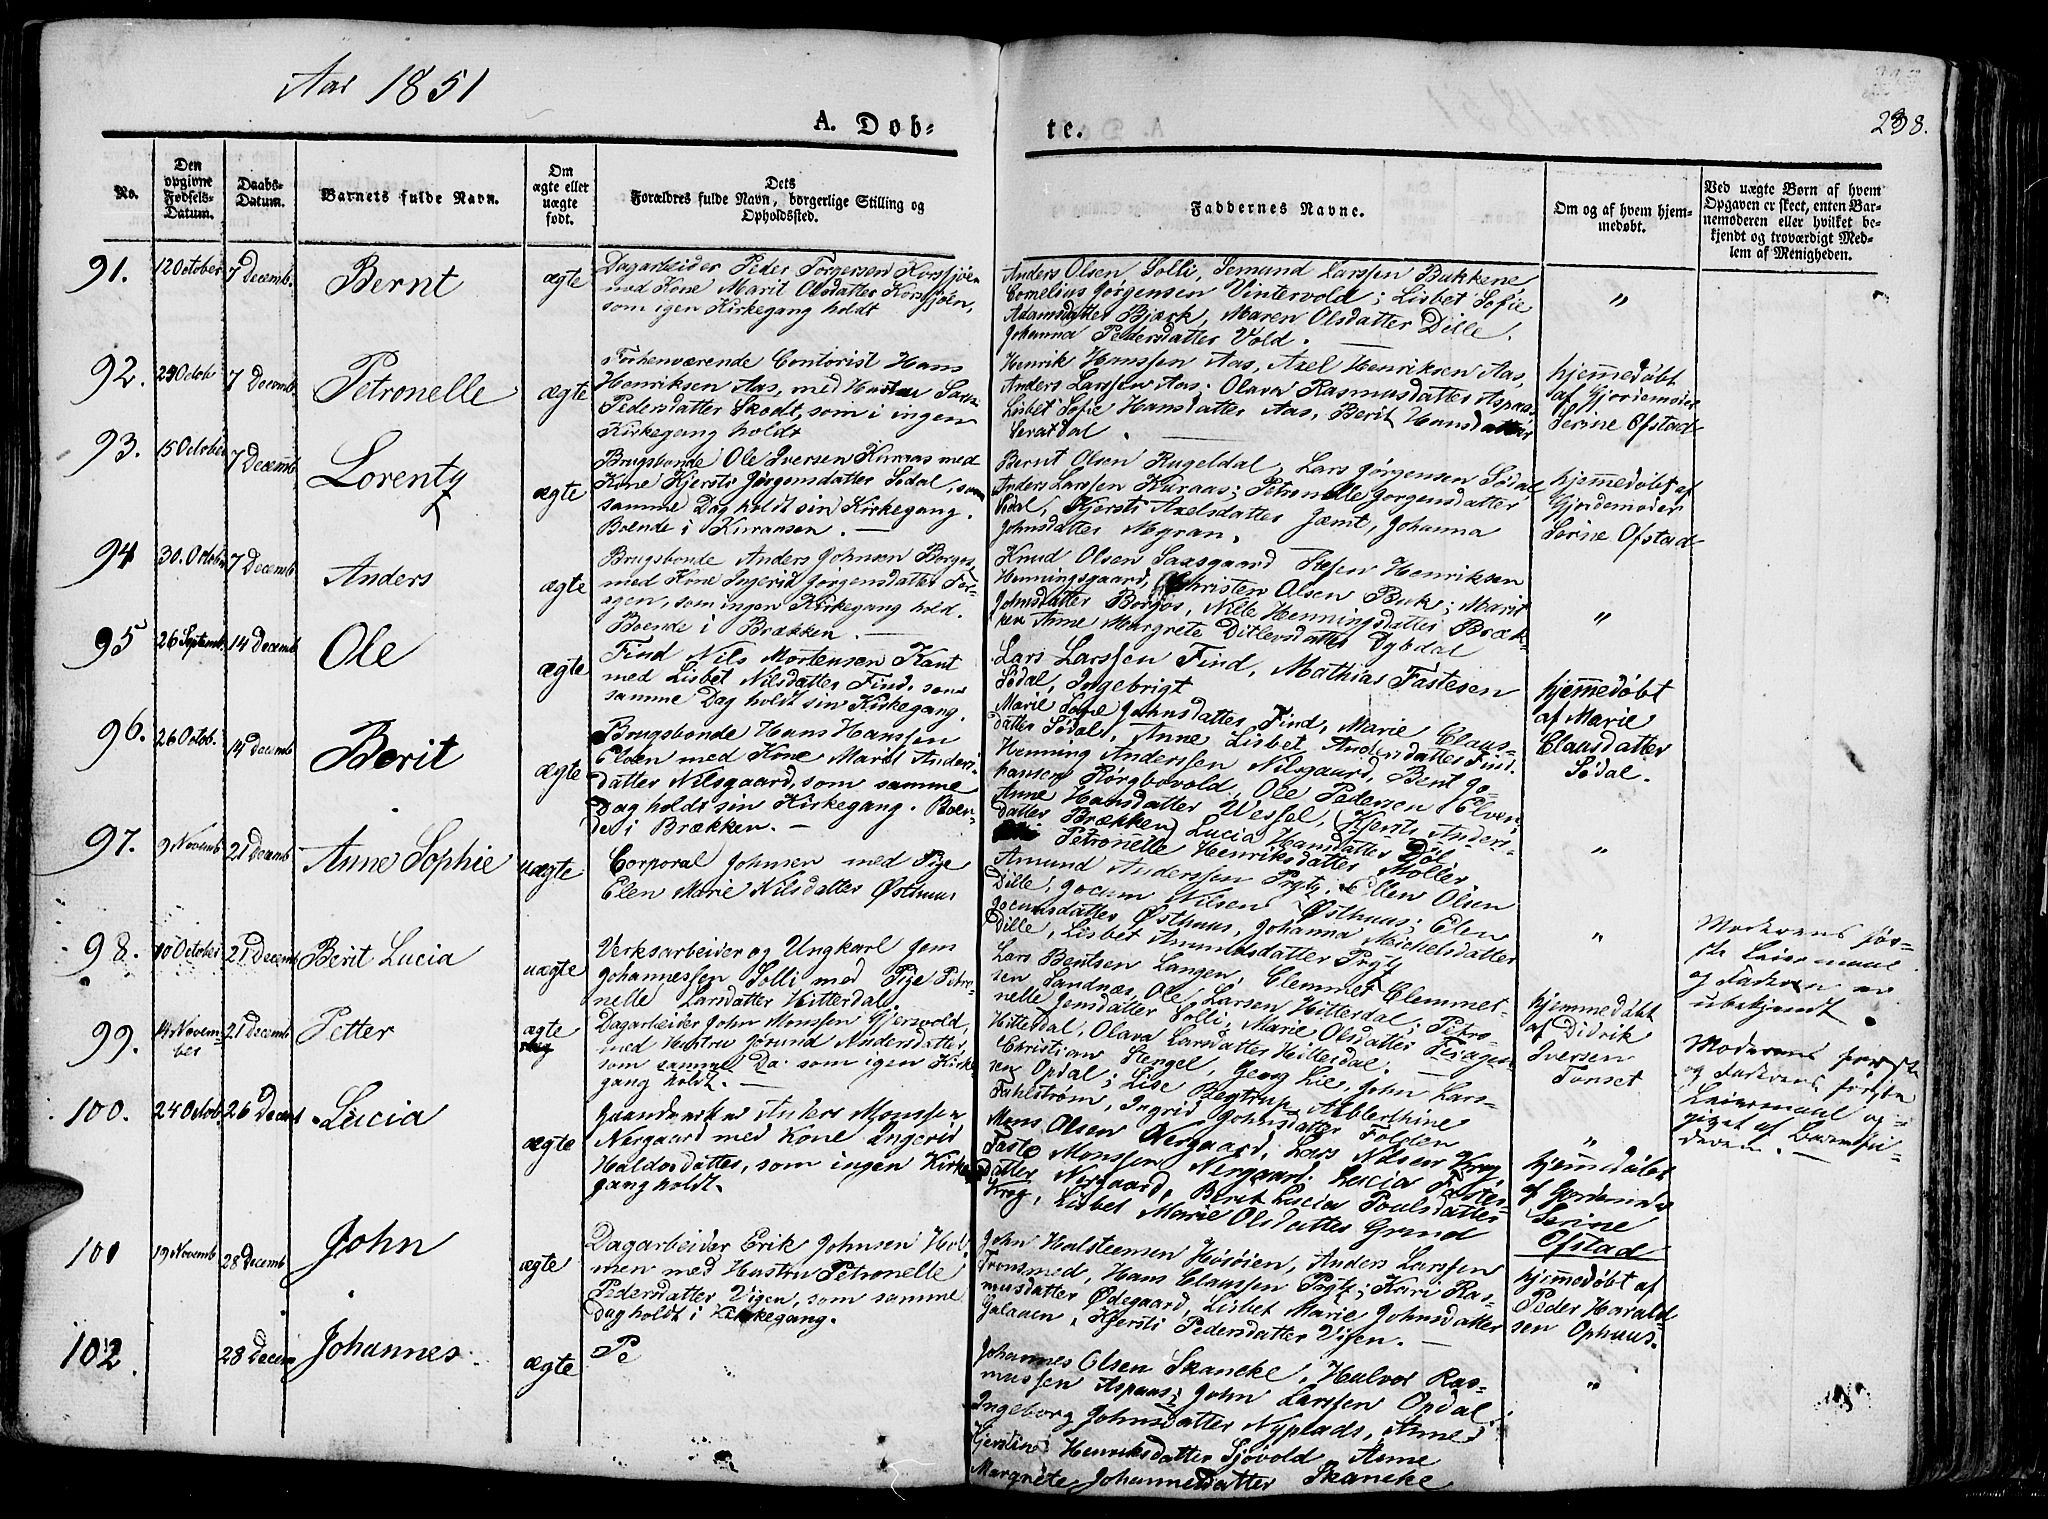 Aar 1851
A. Døb-
te.
238.
No.
Den
opgivne
Fødsels-
Datum.
Daabs-
Datum.
Barnets fulde Navn.
Om
ægte eller
uægte
født.
Dets
Forældres fulde Navn, borgerlige Stilling og
Opholdssted.
Faddernes Navne.
Om og af hvem hjem-
medøbt.
Ved uægte Børn af hvem
Opgaven er skeet, enten Bar-
nemoderen eller hvilket be-
kjendt og troværdigt Med-
lem af Menigheden.
91.
12 October
7 Decemb.
Bernt
ægte
Dagarbeider Peder Torgersen Korssjøen
med Kone Marit Olsdatter Korssjøen,
som igen Kirkegang holdt
Anders Olsen Solli, Semund Larssen Bukkene,
Cornelius Jørgensen Vintervold; Lisbet Sofie
Adamsdatter Bjørk, Maren Olsdatter Dille,
Johanna Pedersdatter Vold.
"
92.
29 Octob
7 Decemb
Petronelle
ægte
Forhenværende Contorist Hans
Henriksen Aas, med Hustru Sara
Pedersdatter Skodt, som ingen
Kirkegang holdt
Henrik Hanssen Aas, Axel Henriksen Aas,
Anders Larssen Aas. Olava Rasmusdatter Aspaas,
Lisbet Sofie Hansdatter Aas, Berit Hansdatter
hjemmedøbt
af Gjordemoder
Serine Ofstad
93.
15 October
7 Decemb
Lorentz
ægte
Brugsbonde Ole Iversen Kuraas med
Kone Kjersti Jørgensdatter Sødal, som
samme Dag holdt sin Kirkegang.
Boende i Kuraasen.
Bernt Olsen Rugeldal, Lars Jørgensen Sødal
Anders Larssen Kuraas; Petronelle Jørgensdatter
Sødal, Kjersti Axelsdatter Jæmt, Johanna
Johnsdatter Myran.
hjemmedøbt af
Gjordemoder
Serine Ofstad
94
30. Octobr
7 Decemb
Anders
ægte
Brugsbonde Anders Johnsen Borgos
med Kone Ingerid Jørgensdatter Tor-
agen, som ingen Kirkegang hold.
Boende i Brækken.
Knud Olsen Saxsgaard Stefen Henriksen
Henningsgaard, Christen Olsen Buk; Marit
Johnsdatter Borgos, Nille Henningsdatter Bræk-
ken Anne Margrete Ditlevsdatter Dybdal
"
95
26 Septemb.
14 Decemb
Ole
ægte
Find Nils Mortensen Kant
med Lisbet Nilsdatter Find, som
samme Dag holdt sin Kirkegang.
Lars Larssen Find, Mathias Fastesen
Sødal, Ingebrigt
Marie Lofe Johnsdatter Find, Marie Claus-
datter Sødal, Anne Lisbet Andersdatter Find.
hjemmedøbt
af Marie
Clausdatter
Sødal.
96.
26 Octob.
14 Decemb
Berit
ægte
Brugsbonde Hans Hanssen
Elven med Kone Marit Anders-
datter Nilsgaard, som samme
Dag holdt sin Kirkegang. Boen-
de i Brækken.
Henning Anderssen Nilsgaard, Bent Jo-
hansen Børgbovold, Ole Pedersen Elven,
Anne Hansdatter Wessel, Kjersti Anders-
datter Brækken, Lucia Hansdatter Døl
"
97.
9 Novemb
21 Decemb
Anne Sophie
uægte
Corporal Johnsen med Pige
Elen Marie Nilsdatter Østhuus
Petronelle Henriksdatter Møller
Amund Anderssen Prytz, Ellen Olsen
Dille, Jocum Nilsen Østhuus; Elen
Jocumsdatter Østhuus, Johanna Michelsdatter
Dille, Lisbet Amundsdatter Prytz
"
Moderens før-
ste Leiermaal
og Faderen er
ubekjendt.
98.
10 October
21 Decemb
Berit Lucia
uægte
Verksarbeider og Ungkarl Jens
Johannessen Solli med Pige Petro-
nelle Larsdatter Hitterdal.
Lars Bentsen Langen, Clemmet Clemmet-
sen Sandnæs, Ole Larsen Hitterdal; Petro-
nelle Jensdatter Solli, Marie Olsdatter
Hitterdal, Olava Larsdatter Hitterdal.
Moderens første
og Faderens første
Leiermaal og
givet af Barnefa-
deren.
99.
14 Novem-
ber
21 Decemb
Petter
ægte
Dagarbeider John Monssen Gjersvold,
med Hustru Jørund Andersdatter,
som samme Da. som igen Kirke
gang holdt.
Christian Sengel, Georg Lie, John Lars-
sen Opdal; Lise Begtrup, Abbledhine
Fahlstrøm, Ingrid Johnsdatter Folden
hjemmedøbt
af Didrik
Iversen
Tonset
100.
24 Octob.
26 Decemb
Lucia
ægte
Gaardmarks Anders Monssen
Nergaard med Kone Ingerid
Haldorsdatter, som ingen Kirke
gang holdt.
Mons Olsen Nergaard, Lars Nilsen Krog,
Faste Monssen Nergaard; Lucia Fastes-
datter Nergaard, Beret Lucia Poulsdatter
Krog, Lisbet Marie Olsdatter Grind
hjemmedøbt
af Gjordemoder
Serine
Ofstad
101
19 Novemb
28 Decemb
John
ægte
Dagarbeider Erik Johnsen Hol-
men med Hustru Petronelle
Pedersdatter Vigen, som samme
Dag holdt i Kirkegang.
John Halsteensen Høsøien, Anders Larssen
Tronsmed, Hans Claussen Prytz; Kari Ras-
musdatter Ødegaard, Lisbet Marie Johnsdatter
Galaaen, Kjersti Pedersdatter Vigen.
hjemmedøbt af
Peder Harald-
sen Ophuus.
102.
28 Decem
Johannes
ægte
Pe
Johannes Olsen Skancke, Halvor Ras-
mussen Aspaas; John Larssen Opdal
Ingeborg Johnsdatter Nyplads, Anne
Kjerstine Henriksdatter Sjøvold Anne
Margrete Johannesdatter Skancke
"